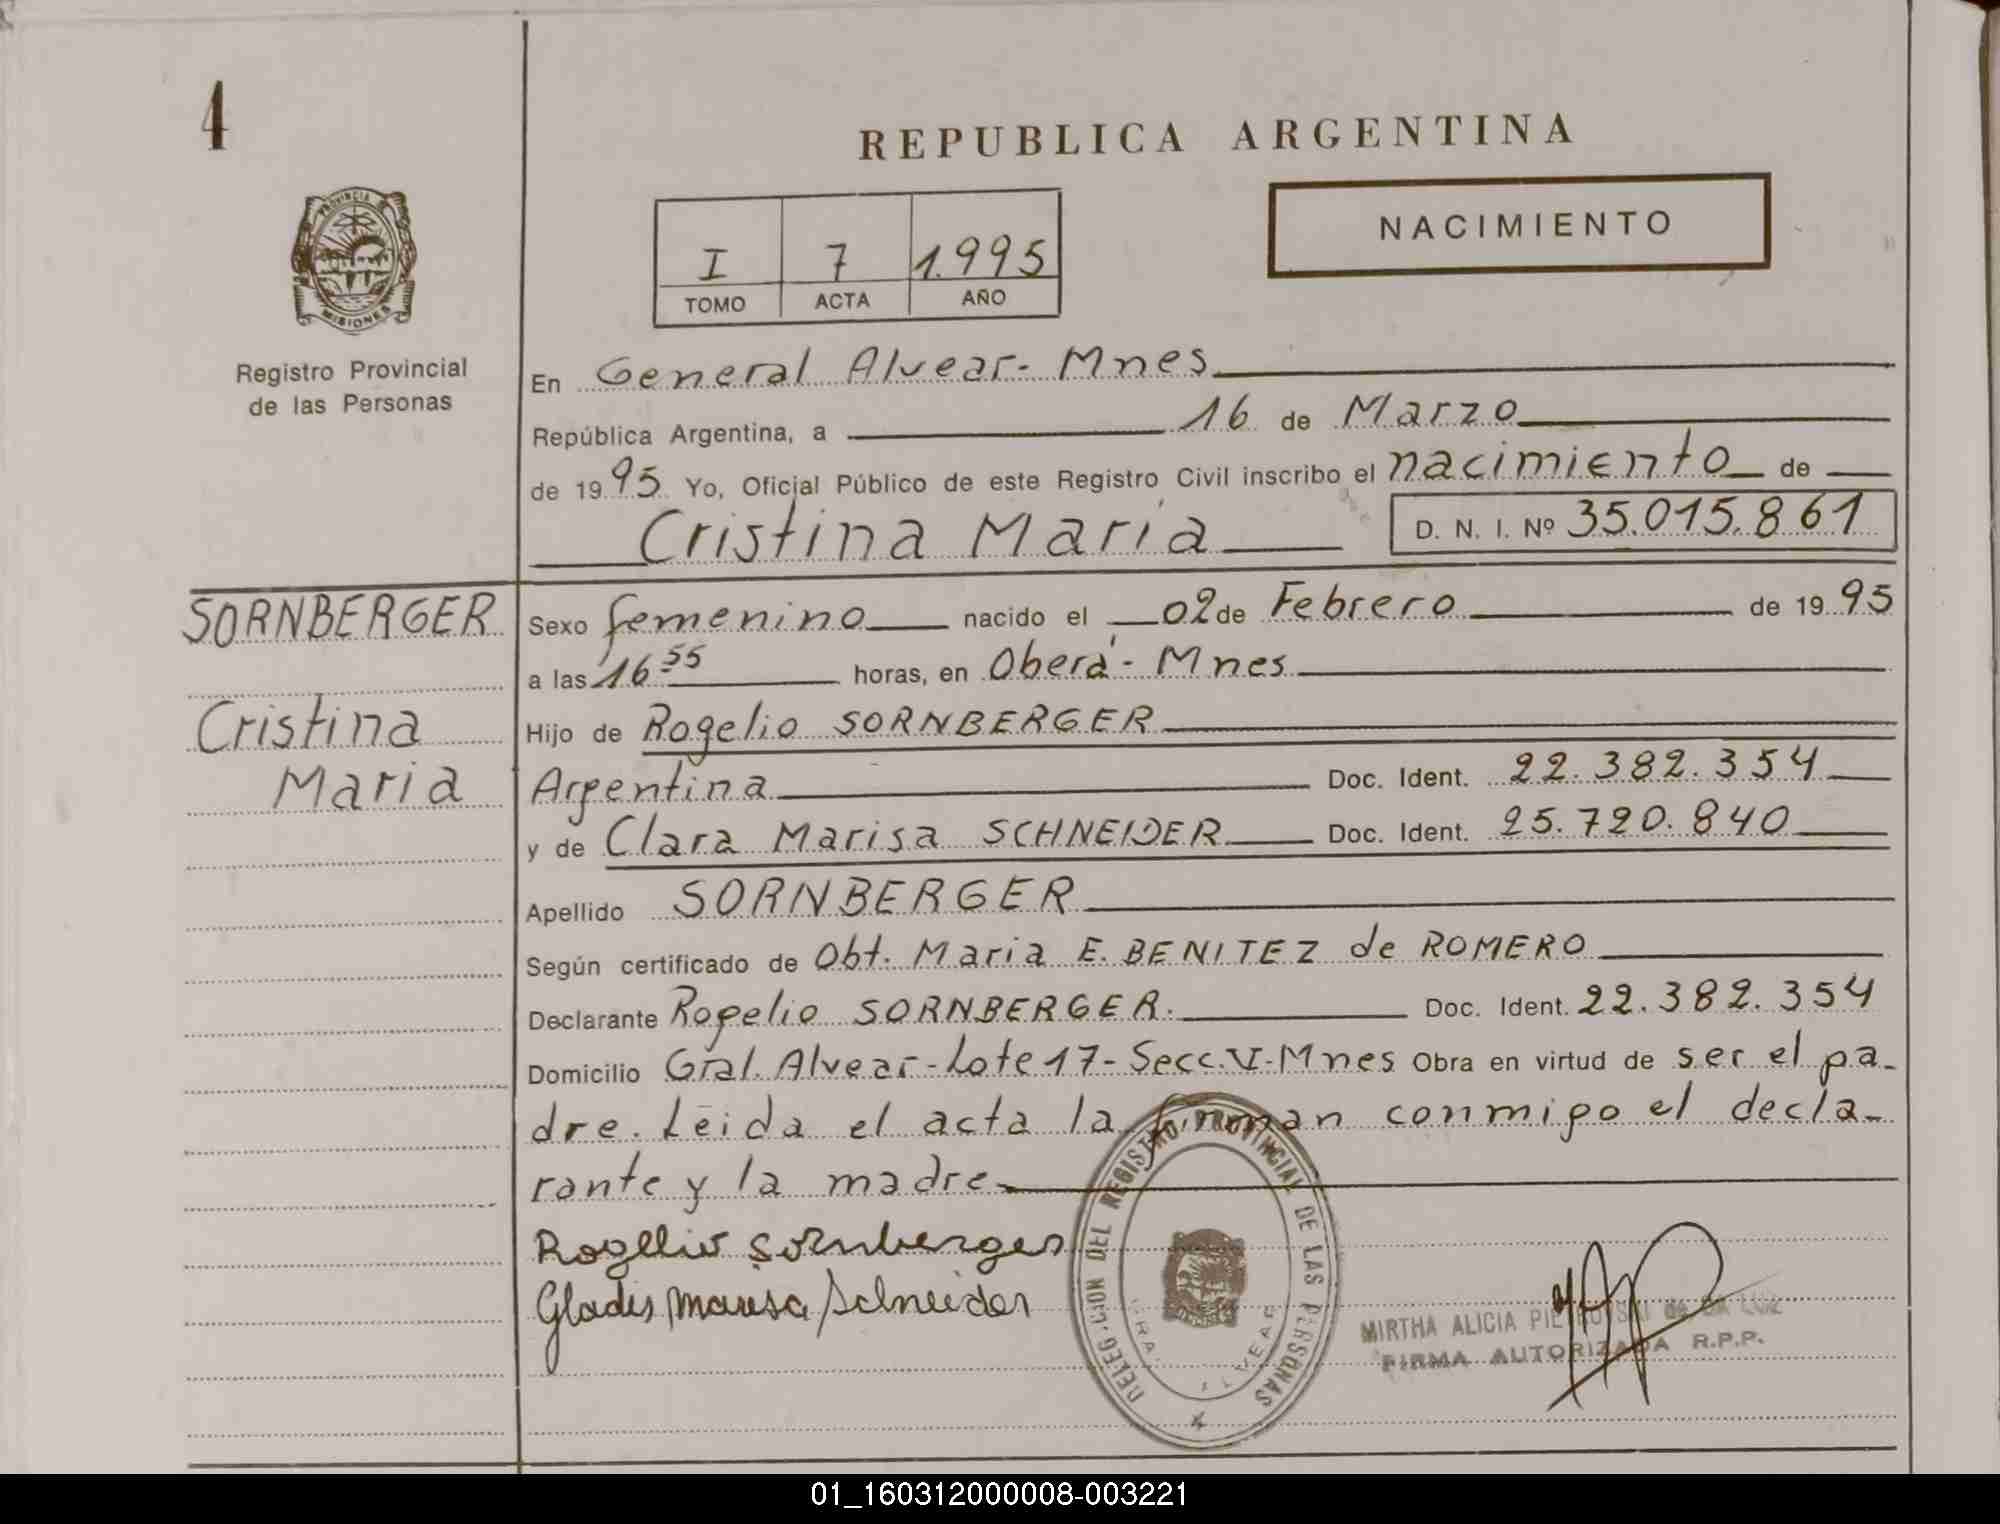 4
REPUBLICA ARGENTINA
PROVINCIA DE
MISIONES
Registro Provincial
de las Personas
I 7 1.995
TOMO ACTA AÑO
NACIMIENTO
En General Alvear - Mnes
República Argentina, a 16 de Marzo
de 1995 Yo, Oficial Público de este Registro Civil inscribo el nacimiento de
Cristina Maria D. N. I. Nº 35.015.861
SORNBERGER
Cristina
Maria
Sexo femenino nacido el 02 de Febrero de 1995
a las 16 55 horas, en Oberá - Mnes
Hijo de Rogelio SORNBERGER
Argentina Doc. Ident. 22.382.354
y de Clara Marisa SCHNEIDER Doc. Ident. 25.720.840
Apellido SORNBERGER
Según certificado de Obt. Maria E. BENITEZ de ROMERO
Declarante Rogelio SORNBERGER. Doc. Ident. 22.382.354
Domicilio Gral. Alvear - Lote 17 - Secc. V - Mnes Obra en virtud de ser el pa-
dre. Leida el acta la firman conmigo el decla-
rante y la madre
Rogelio Sornberger
Gladis Marisa Schneider
DELEGACION DEL REGISTRO PROVINCIAL DE LAS PERSONAS
GRAL. ALVEAR
MIRTHA ALICIA de DA LUZ
FIRMA AUTORIZADA R.P.P.
01_160312000008-003221